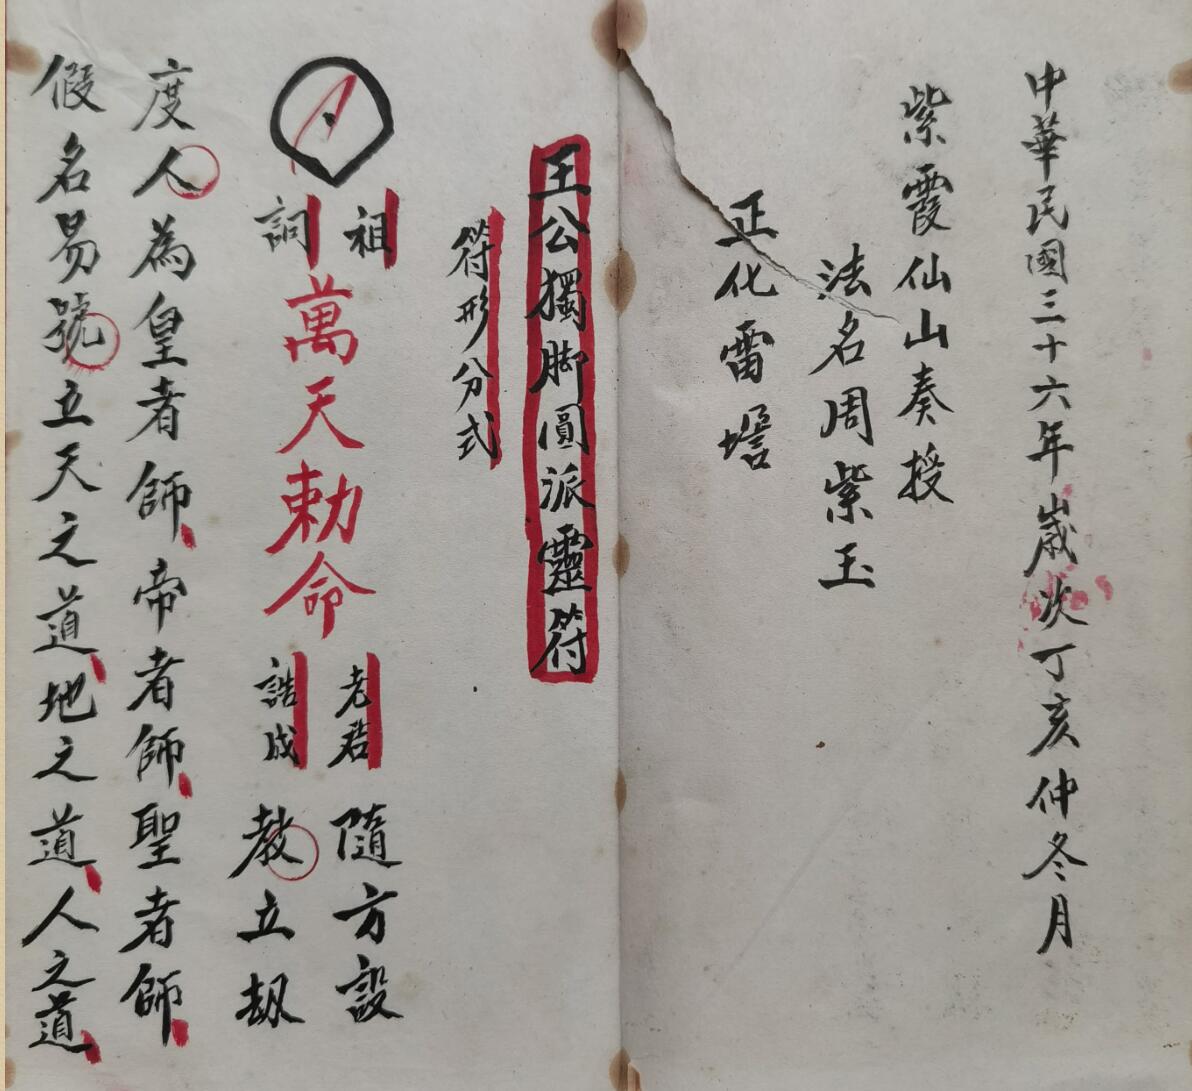 中華民國三十六年歲次丁亥仲冬月
紫霞仙山奏授
法名周紫玉
正化雷壇
王公獨脚圓派靈符
符形分式
祖
詞
萬天勅命
老君
誥成
隨方設
教立劫
度人為皇者師帝者師聖者師
假名易號立天之道地之道人之道